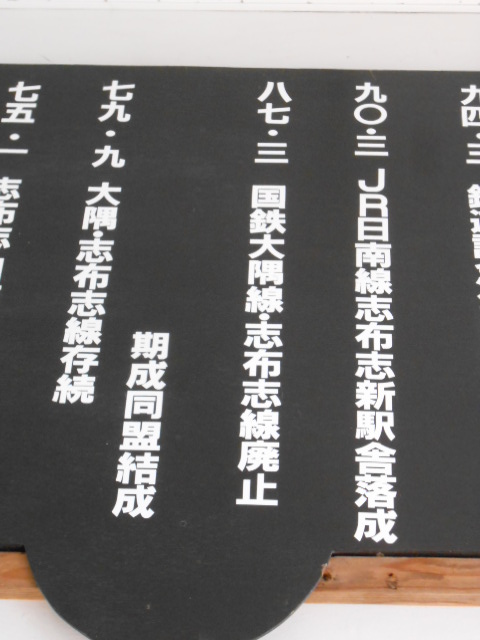 九四・三 鉄道記
九〇・三 JR日南線志布志新駅舎落成
八七・三 国鉄大隅線・志布志線廃止
七九・九 大隅・志布志線存続
期成同盟結成
七五・一 志布志